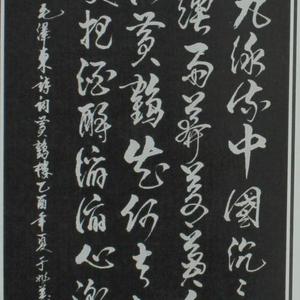 九派流中國沉〻
煙雨莽蒼蒼
黃鶴知何去
處把酒酹滔滔心潮
毛澤東詩詞黃鶴樓乙酉年夏于